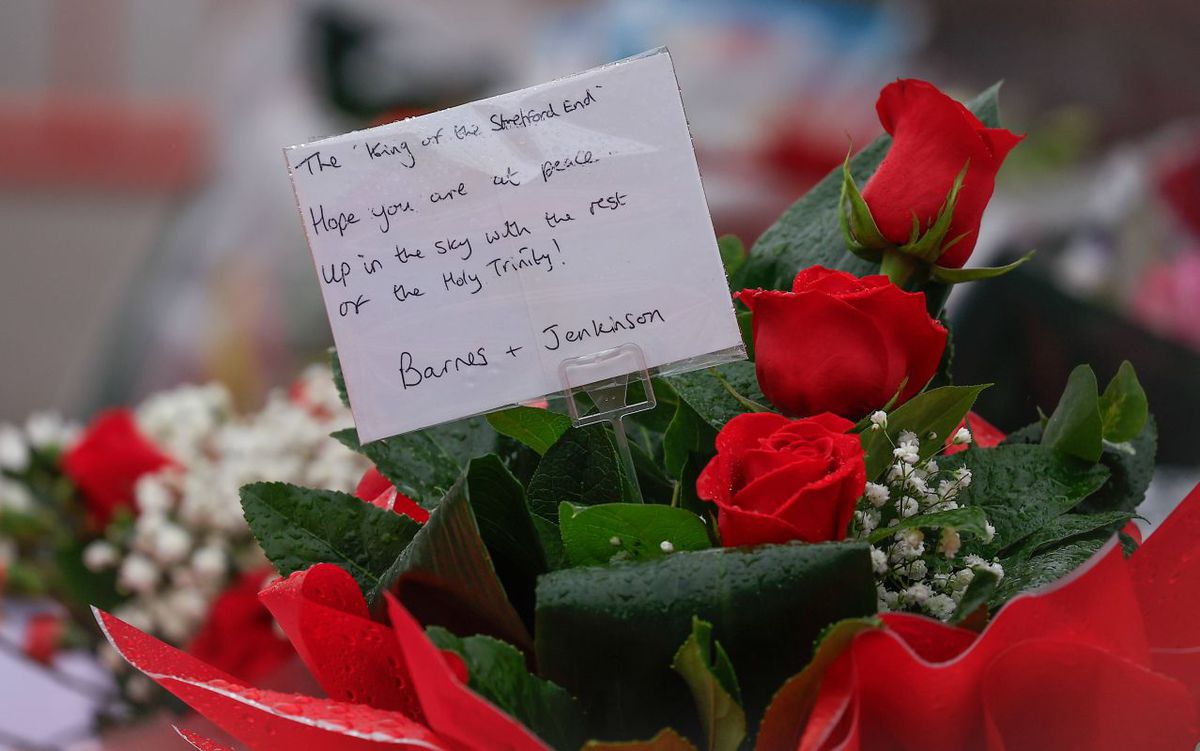 The 'King of the Stretford End'
Hope you are at peace...
Up in the sky with the rest
of the Holy Trinity!
Barnes + Jenkinson